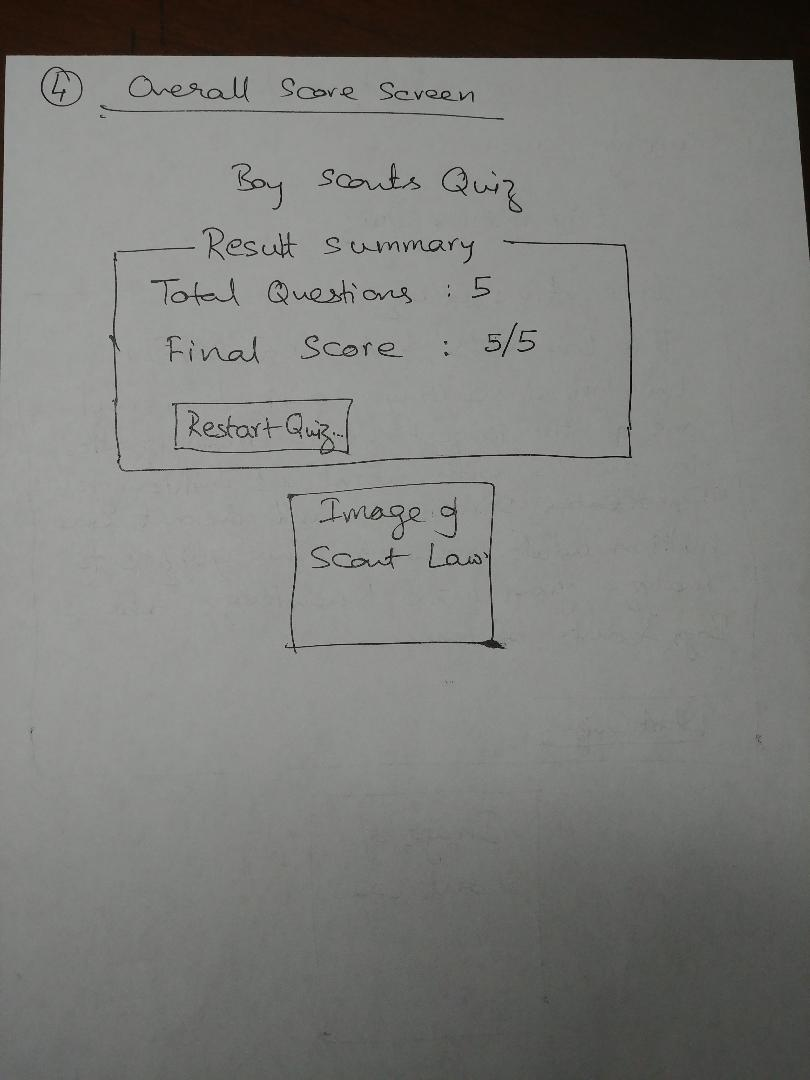 4 Overall Score Screen
Boy Scouts Quiz
Result summary
Total Questions : 5
Final Score : 5/5
Restart Quiz..
Image of
Scout Law